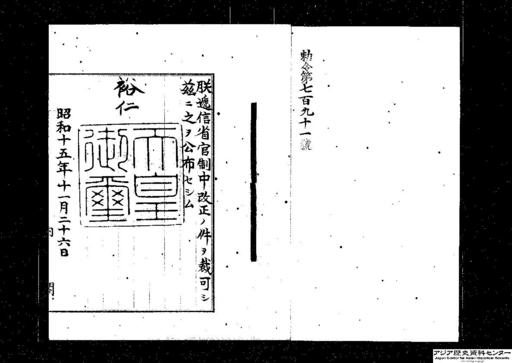 勅令第七百九十一號
朕遞信省官制中改正ノ件ヲ裁可シ
茲ニ之ヲ公布セシム
裕仁
天皇御璽
昭和十五年十一月二十六日
内閣
アジア歴史資料センター
Japan Center for Asian Historical Records